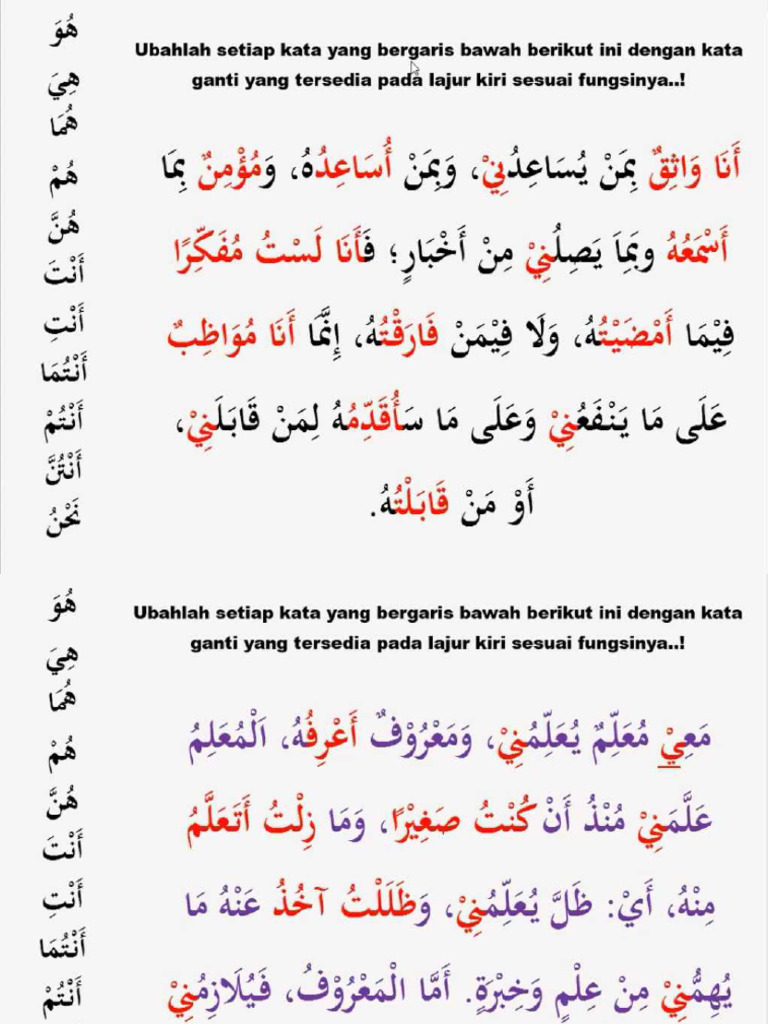 Ubahlah setiap kata yang bergaris bawah berikut ini dengan kata
ganti yang tersedia pada lajur kiri sesuai fungsinya..!
هُوَ
هِيَ
هُمَا
هُمْ
هُنَّ
أَنْتَ
أَنْتِ
أَنْتُمَا
أَنْتُمْ
أَنْتُنَّ
نَحْنُ
أَنَا وَاثِقٌ بِمَنْ يُسَاعِدُنِيْ، وَبِمَنْ أُسَاعِدُهُ، وَمُؤْمِنٌ بِمَا
أَسْمَعُهُ وبَمِاَ يَصِلُنِيْ مِنْ أَخْبَارٍ؛ فَأَنَا لَسْتُ مُفَكِّرًا
فِيْمَا أَمْضَيْتُهُ، وَلَا فِيْمَنْ فَارَقْتُهُ، إِنَّمَا أَنَا مُوَاظِبٌ
عَلَى مَا يَنْفَعُنِيْ وَعَلَى مَا سَأُقَدِّمُهُ لِمَنْ قَابَلَنِيْ،
أَوْ مَنْ قَابَلْتُهُ.
Ubahlah setiap kata yang bergaris bawah berikut ini dengan kata
ganti yang tersedia pada lajur kiri sesuai fungsinya..!
هُوَ
هِيَ
هُمَا
هُمْ
هُنَّ
أَنْتَ
أَنْتِ
أَنْتُمَا
أَنْتُمْ
مَعِيْ مُعَلِّمٌ يُعَلِّمُنِيْ، وَمَعْرُوْفٌ أَعْرِفُهُ، اَلْمُعَلِمُ
عَلَّمَنِيْ مُنْذُ أَنْ كُنْتُ صَغِيْرًا، وَمَا زِلْتُ أَتَعَلَّمُ
مِنْهُ، أَيْ: ظَلَّ يُعَلِّمُنِيْ، وَظَلَلْتُ آخُذُ عَنْهُ مَا
يُهِمُّنِيْ مِنْ عِلْمٍ وَخِبْرَةٍ. أَمَّا الْمَعْرُوْفُ، فَيُلَازِمُنِيْ